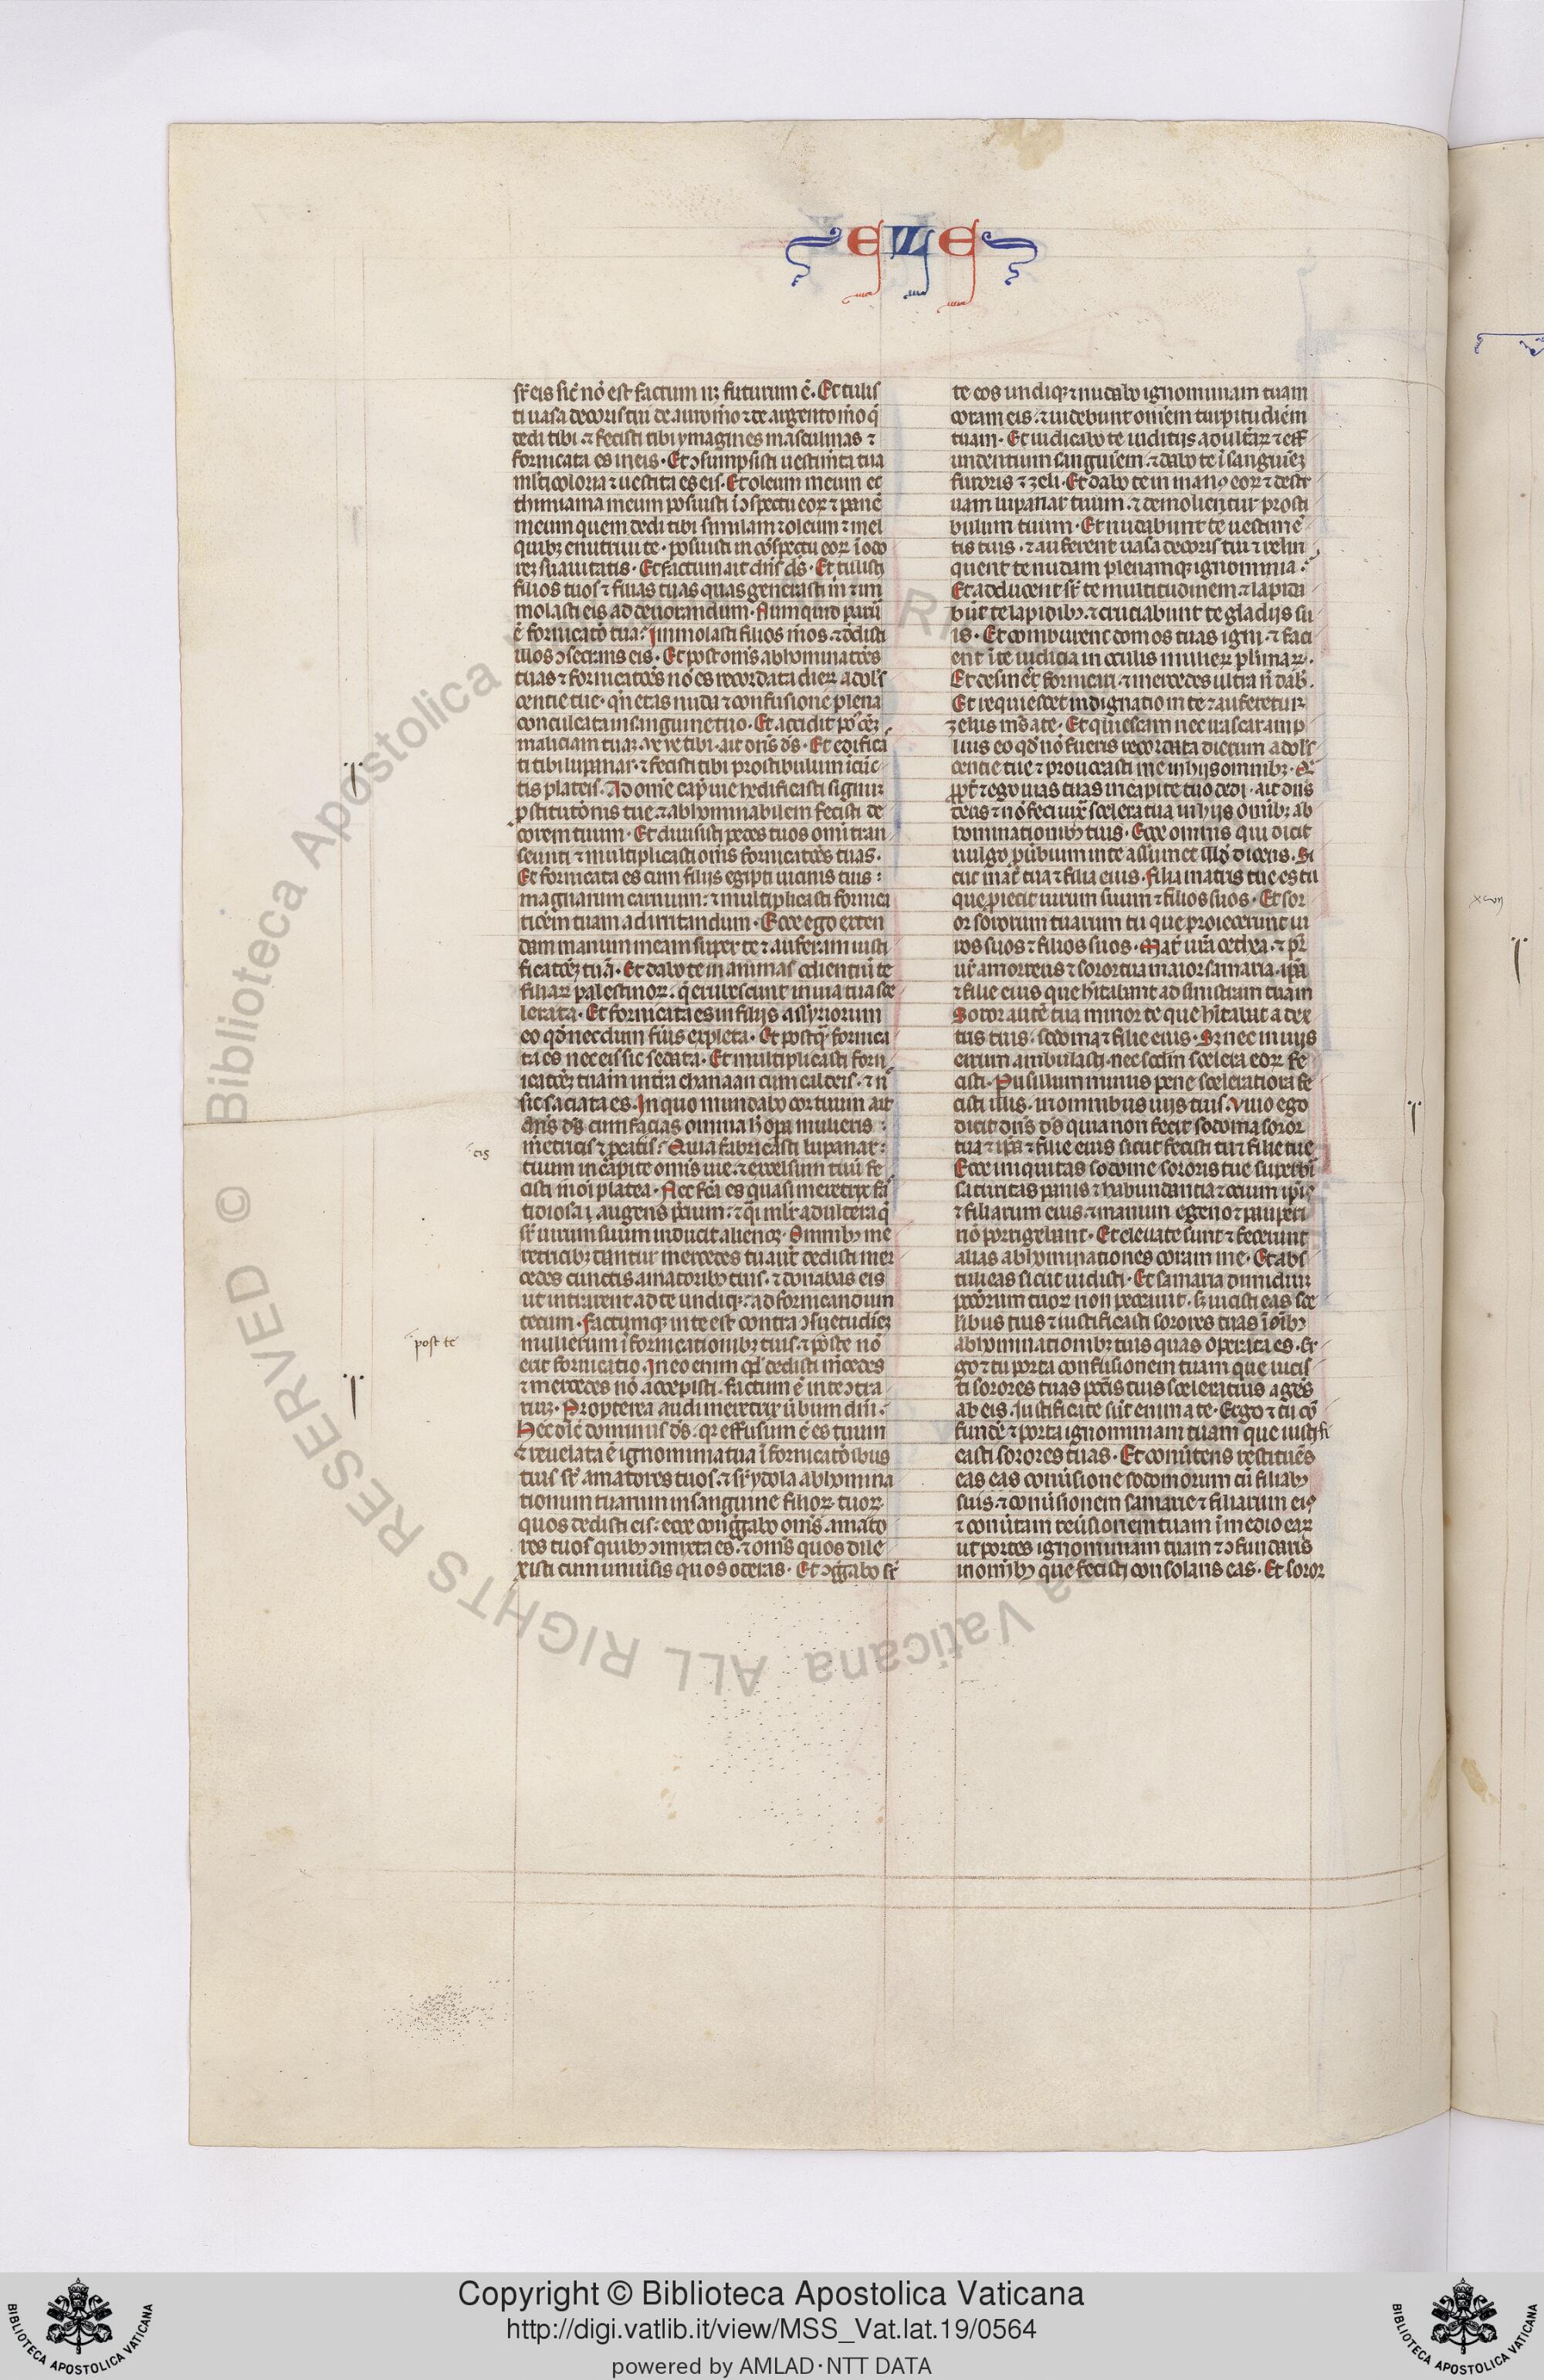 EZE
sr̄ eis sic̄ nō est factum neqꝫ futurum ē. Et tulis
ti uasa decoris tui de auro m̄o ⁊ de argento m̄o q̄
dedi tibi. ⁊ fecisti tibi ymagines masculinas ⁊
fornicata es in eis. Et ɔsumpsisti uestim̄ta tua
ml̄ticoloria ⁊ uestita es eis. Et oleum meum et
thimiama meum posuisti ī ɔspectu eoꝝ ⁊ panē
meum quem dedi tibi similam ⁊ oleum ⁊ mel
quibꝫ enutriui te. posuisti in cōspectu eoꝝ ī odo
reꝫ suauitatis. Et factum ait dn̄s ds̄. Et tulisti
filios tuos ⁊ filias tuas quas generasti m̄ ⁊ im
molasti eis ad deuorandum. Numquid parua
ē fornicatō tua? Immolasti filios m̄os. ⁊ dedisti
illos ɔsecrans eis. Et post om̄s abhominatōes
tuas ⁊ fornicatōes nō es recordata dieꝝ adol's
centie tue. qn̄ eras nuda ⁊ confusione plena
conculcata in sanguine tuo. Et accidit po' oēꝫ
maliciam tuaꝫ. ve ve tibi. ait dn̄s ds̄. Et edifica
ti tibi lupanar. ⁊ fecisti tibi prostibulum ī cūc
tis plateis. Ad om̄e cap' uie hedificasti signuꝫ
ꝓstitutōnis tue. ⁊ abhominabilem fecisti de
corem tuum. Et diuisisti pedes tuos om̄i tran
seunti ⁊ multiplicasti om̄s fornicatōes tuas.
Et fornicata es cum filijs egipti uicinis tuis:
magnarum carnium: ⁊ multiplicasti fornica
tiōem tuam ad irritandum. Ecce ego exten
dam manum meam super te ⁊ auferam iusti
ficatōeꝫ tuā. Et dabo te in animas odientiū te
filiaꝝ palestinoꝝ. q̄ erubescunt in uia tua sce
lerata. Et fornicata es in filijs assyriorum
eo qd̄ necdum fūis expleta. Et postq̄ fornica
ta es nec eis sic sedata. Et multiplicasti forn
icatōeꝫ tuam in tr̄a chanaan cum caldeis. ⁊ n̄
sic saciata es. In quo mundabo cor tuum ait
dn̄s ds̄ cum facias omnia h̄ opa mulieris
m̄etricis ⁊ ꝓcatis? Quia fabricasti lupanar
tis
tuum in capite om̄is uie. ⁊ excelsum tuū fe
cisti in oī platea. Nec fc̄a es quasi meretrix fa
tidiosa ⁊ augens p̄cium: ⁊ q̄i ml̄r adultera q̄
sr̄ uirum suum inducit alienoꝫ. Omnibꝫ me
retricibꝫ dantur mercedes tu aut̄ dedisti mer
cedes cunctis amatoribꝫ tuis. ⁊ donabas eis
ut intrarent ad te undiqꝫ. ⁊ ad fornicandum
tecum. Factumqꝫ in te est contra ɔsuetudīeꝫ
mulierum ī fornicationibꝫ tuis. ⁊ poste nō
post te
erit fornicatio. In eo enim qd̄ dedisti m̄cedes
⁊ mercedes nō accepisti. factum ē in te ɔtra
riuꝫ. Propterea audi meretrix ūbum dn̄i.
Hec dic̄ dominus ds̄. qꝛ effusum ē es tuum
⁊ reuelata ē ignominia tua ī fornicatōibus
tuis sr̄ amatores tuos. ⁊ sr̄ ydola abhomina
tionum tuarum in sanguine filioꝝ tuoꝝ
quos dedisti eis: ecce cong̃gabo om̄s amato
res tuos quibꝫ ɔmixta es. ⁊ om̄s quos dile
xisti cum uniūsis quos oderas. Et ɔg̃gabo sr̄
te eos undiqꝫ ⁊ nudabo ignominiam tuam
coram eis. ⁊ uidebunt omēm turpitudiēm
tuam. Et iudicabo te iuditijs adult̄aꝝ ⁊ eff
undentium sanguīem. ⁊ dabo te ī sanguīeꝫ
furoris ⁊ zeli. Et dabo te in manꝰ eoꝝ ⁊ destr
uam lupanar tuum. ⁊ demolientur prosti
bulum tuum. Et nudabunt te uestimē
tis tuis. ⁊ auferent uasa decoris tui ⁊ relin
quent te nudam plenamqꝫ ignominia.
Et adducent sr̄ te multitudinem. ⁊ lapida
būt te lapidibꝫ. ⁊ trucidabunt te gladijs su
is. Et comburent domos tuas igni. ⁊ faci
ent ī te iudicia in oculis mulieꝝ plurimaꝝ.
Et desines fornicari. ⁊ mercedes ultra n̄ dab'.
Et requiescet indignatio m̄ te ⁊ auferetur
zelus ms̄ a te. Et quiescam nec irascar amp
lius eo qd̄ nō fueris recordata dierum adols
centie tue ⁊ prouocasti me in hijs omnibꝫ. Q
ꝓpt̄ ⁊ ego uias tuas in capite tuo dedi. ait dn̄s
deus ⁊ nō feci iux̄ scelera tua in hijs omībꝫ ab
hominationibꝫ tuis. Ecce omnis qui dicit
uulgo ꝓūbium in te assumet illud dicens. Si
cut mat̄ tua ⁊ filia eius. Filia matris tue es tu
que ꝓiecit uirum suum ⁊ filios suos. Et sor
or sororum tuarum tu que proiecerunt ui
ros suos ⁊ filios suos. Mat̄ ur̄a cethea. ⁊ pr̄
ur̄ amorreus ⁊ soror tua maior samaria. ip̄a
⁊ filie eius que hītabant ad sinistram tuam
Soror autē tua minor te que hītabat a dex
tris tuis. sodoma ⁊ filie eius. Sꝫ nec in uijs
earum ambulasti. nec scd̄m scelera eoꝝ fe
cisti. Pusillum minus pene sceleratiora fe
cisti illis. in omnibus uijs tuis. Viuo ego
dicit dn̄s ds̄ quia non fecit sodoma soror
tua ⁊ ip̄a ⁊ filie eius sicut fecisti tu ⁊ filie tue
Ecce iniquitas sodome sororis tue superbi
saturitas panis ⁊ habundantia ⁊ ocium ip̄iꝰ
⁊ filiarum eius. ⁊ manum egeno ⁊ pauperi
nō porrigebant. Et eleuate sunt ⁊ fecerunt
alias abhominationes coram me. Et abs
tuli eas sicut uidisti. Et samaria dimidiuꝫ
pecc̄orum tuoꝝ non peccauit. sꝫ uicisti eas sce
leribus tuis ⁊ iustificasti sorores tuas ī oībꝫ
abhominationibꝫ tuis quas operata es. Er
go ⁊ tu porta confusionem tuam que uicis
ti sorores tuas pcc̄is tuis sceleratius agēs
ab eis. Iustificate sūt enim a te. Ergo ⁊ tu cō
fundē ⁊ porta ignominiam tuam que iusti fi
casti sorores tuas. Et conūtens restituēs
eas eas conūsione sodomorum cū filiabꝫ
suis. ⁊ conūsionem samarie ⁊ filiarum eiꝰ
⁊ conūtam reūsionem tuam ī medio eaꝝ
ut portes ignominiam tuam ⁊ ɔfundaris
in omībꝫ que fecisti consolans eas. Et soror
xvij
© Biblioteca Apostolica Vaticana ALL RIGHTS RESERVED
Copyright © Biblioteca Apostolica Vaticana
http://digi.vatlib.it/view/MSS_Vat.lat.19/0564
powered by AMLAD·NTT DATA
BIBLIOTECA APOSTOLICA VATICANA
BIBLIOTECA APOSTOLICA VATICANA